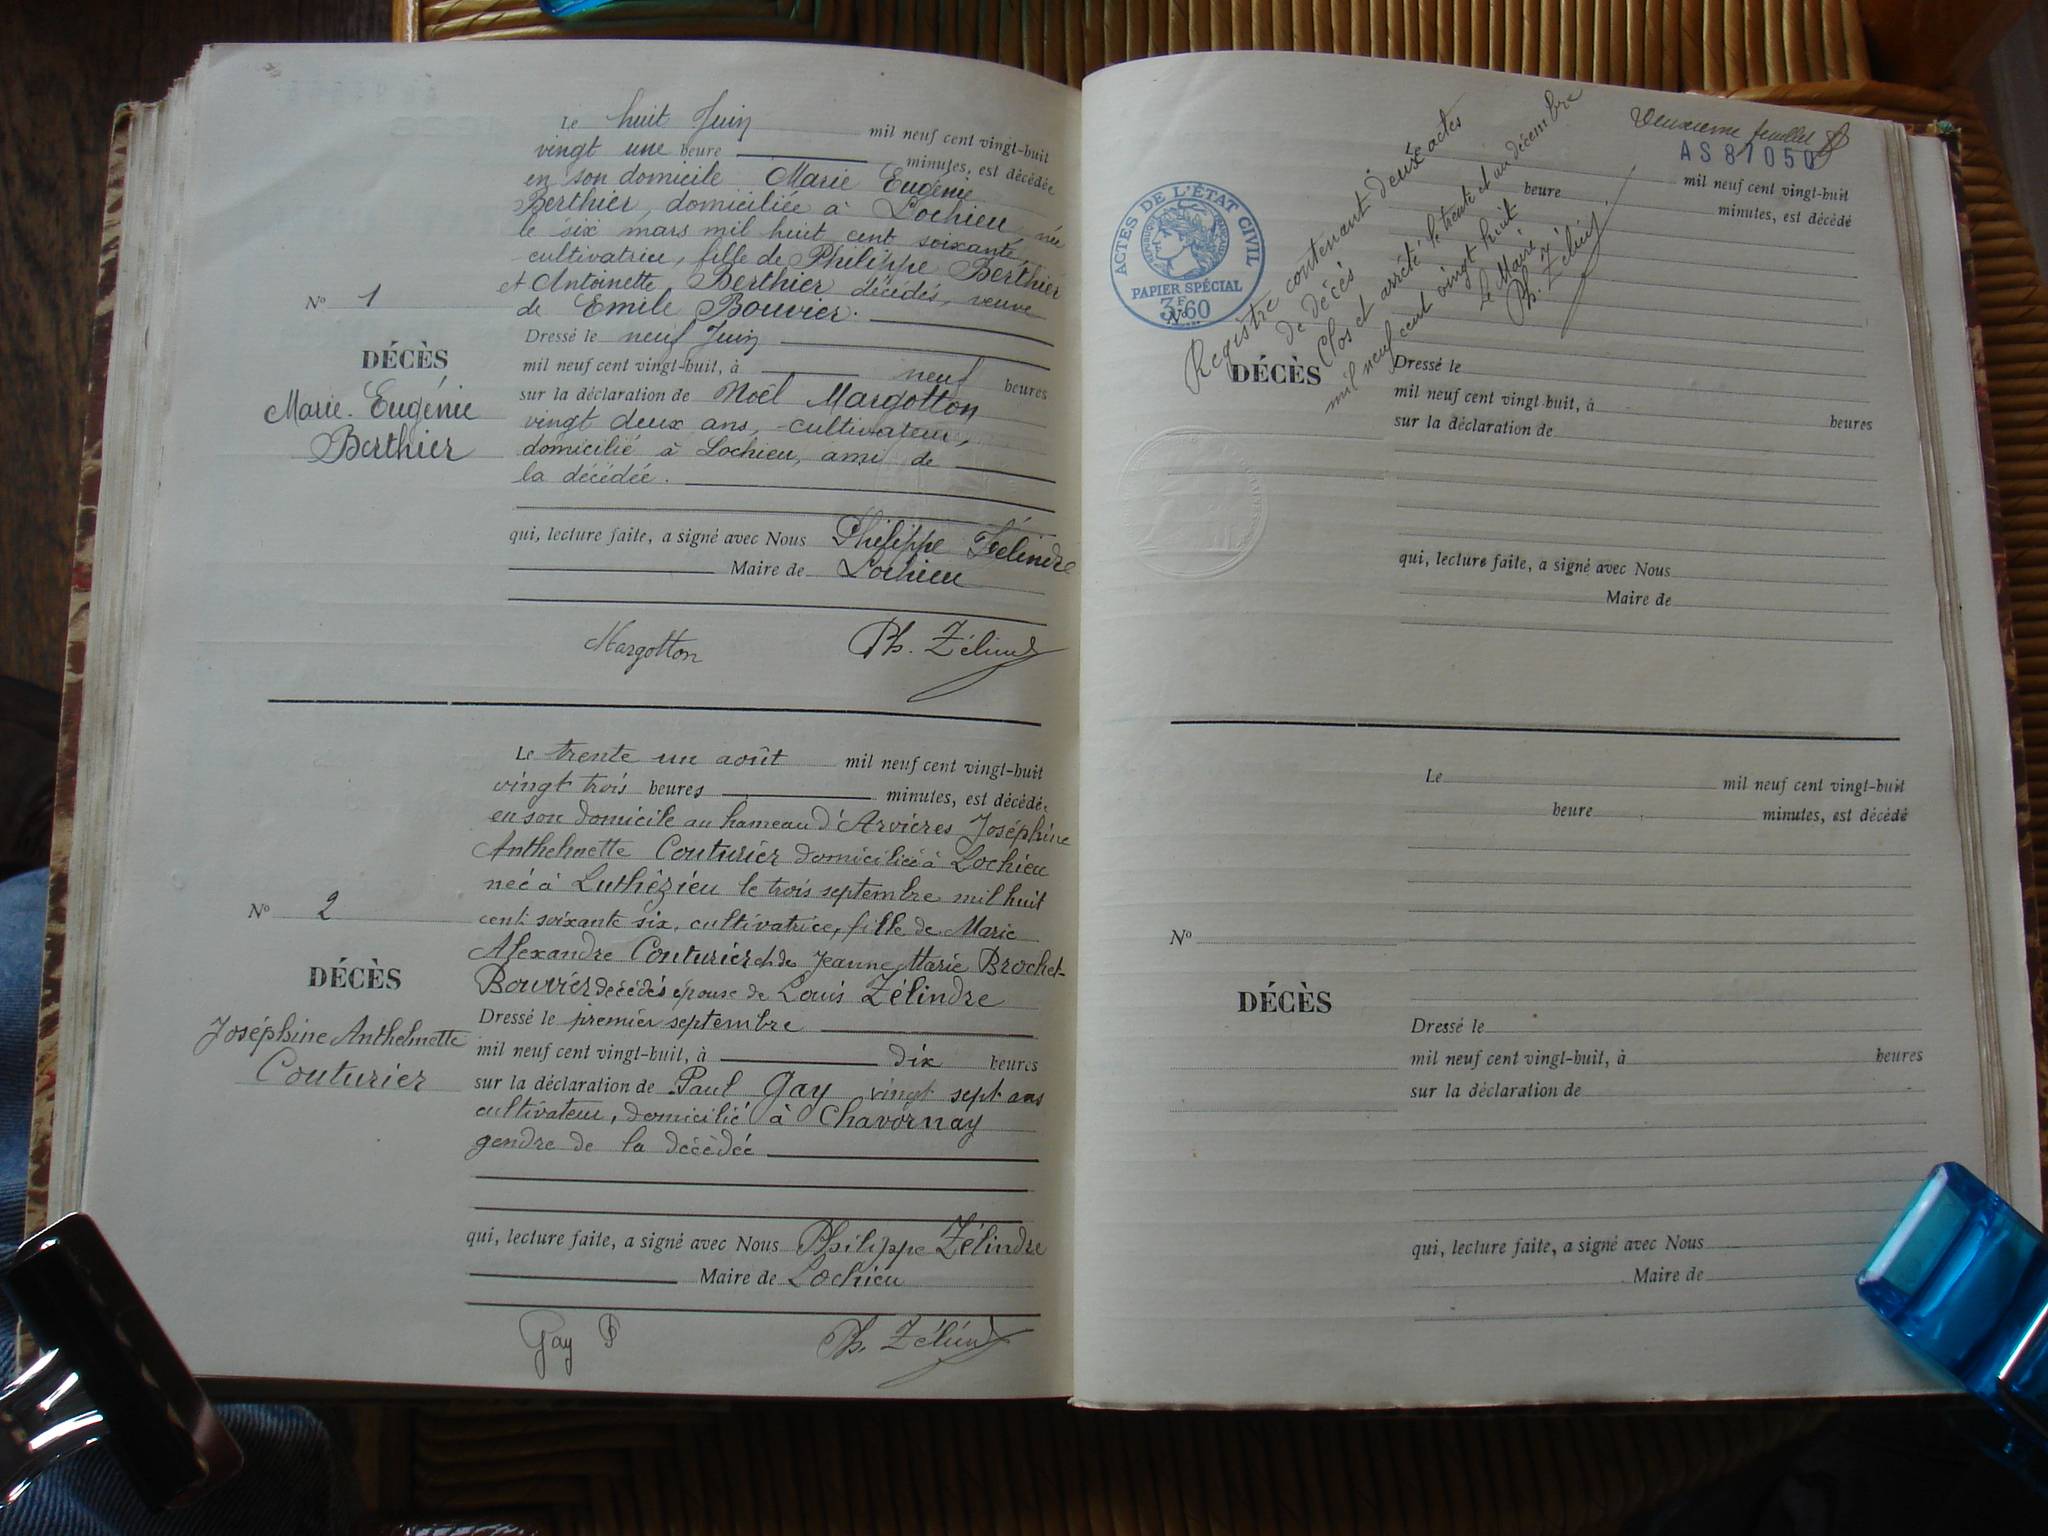 Le huit Juin mil neuf cent vingt-huit
vingt une heure minutes, est décédée
en son domicile Marie Eugénie
Berthier, domiciliée à Lochieu, née
le six mars mil huit cent soixante,
cultivatrice, fille de Philippe Berthier
et Antoinette Berthier décédés, veuve
de Emile Bouvier.
N° 1
DÉCÈS
Marie Eugénie
Berthier
Dressé le neuf Juin
mil neuf cent vingt-huit, à neuf heures
sur la déclaration de Noël Margotton
vingt deux ans, cultivateur,
domicilié à Lochieu, ami de
la décédée.
qui, lecture faite, a signé avec Nous Philippe Zélindre
Maire de Lochieu
Margotton Ph. Zélindre
Le trente un août mil neuf cent vingt-huit
vingt trois heures minutes, est décédée
en son domicile au hameau d'Arvières Joséphine
Anthelmette Couturier domiciliée à Lochieu
neé à Luthézieu le trois septembre mil huit
cent soixante six, cultivatrice, fille de Marie
Alexandre Couturier et de Jeanne Marie Brochet-
Bouvier décédés épouse de Louis Zélindre
N° 2
DÉCÈS
Joséphine Anthelmette
Couturier
Dressé le premier septembre
mil neuf cent vingt-huit, à dix heures
sur la déclaration de Paul Gay vingt sept ans
cultivateur, domicilié à Chavornay
gendre de la décédée
qui, lecture faite, a signé avec Nous Philippe Zélindre
Maire de Lochieu
Gay P Ph. Zélindre
Deuxième feuillet
AS 87050
ACTES DE L'ÉTAT CIVIL
RÉPUBLIQUE FRANÇAISE
PAPIER SPÉCIAL
3F60
Registre contenant deux actes
de décès
Clos et arrêté le trente et un décembre
mil neuf cent vingt huit
Le Maire
Ph. Zélindre
mil neuf cent vingt-huit
heure minutes, est décédé
N°
DÉCÈS
Dressé le
mil neuf cent vingt-huit, à heures
sur la déclaration de
qui, lecture faite, a signé avec Nous
Maire de
Le mil neuf cent vingt-huit
heure minutes, est décédé
N°
DÉCÈS
Dressé le
mil neuf cent vingt-huit, à heures
sur la déclaration de
qui, lecture faite, a signé avec Nous
Maire de